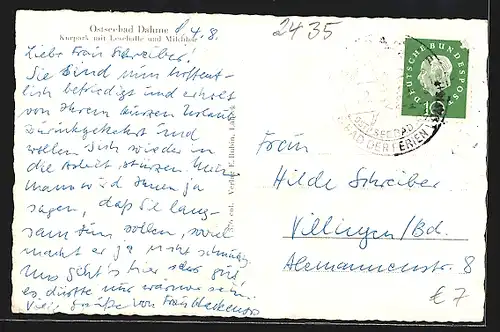 Ostseebad Dahme
Kurpark mit Lesehalle und Milchbar
4.8.
2435
Liebe Frau Schreiber!
Sie sind nun hoffent-
lich befriedigt und erholt
von Ihrem kurzen Urlaub
zurückgekehrt und
wollen sich wieder in
die Arbeit stürzen. Mein
Mann wird Ihnen ja
sagen, daß Sie lang-
sam tun sollen, soviel
macht er ja nicht
Uns geht's hier sehr gut
es dürfte nur wärmer sein.
Viele Grüße von Frau
Verlag E. Rubin, Lübeck
DEUTSCHE BUNDESPOST
10
OSTSEEBAD
BAD DER FERIEN
Frau
Hilde Schreiber
Villingen/Bd.
Alemannenstr. 8
€ 7